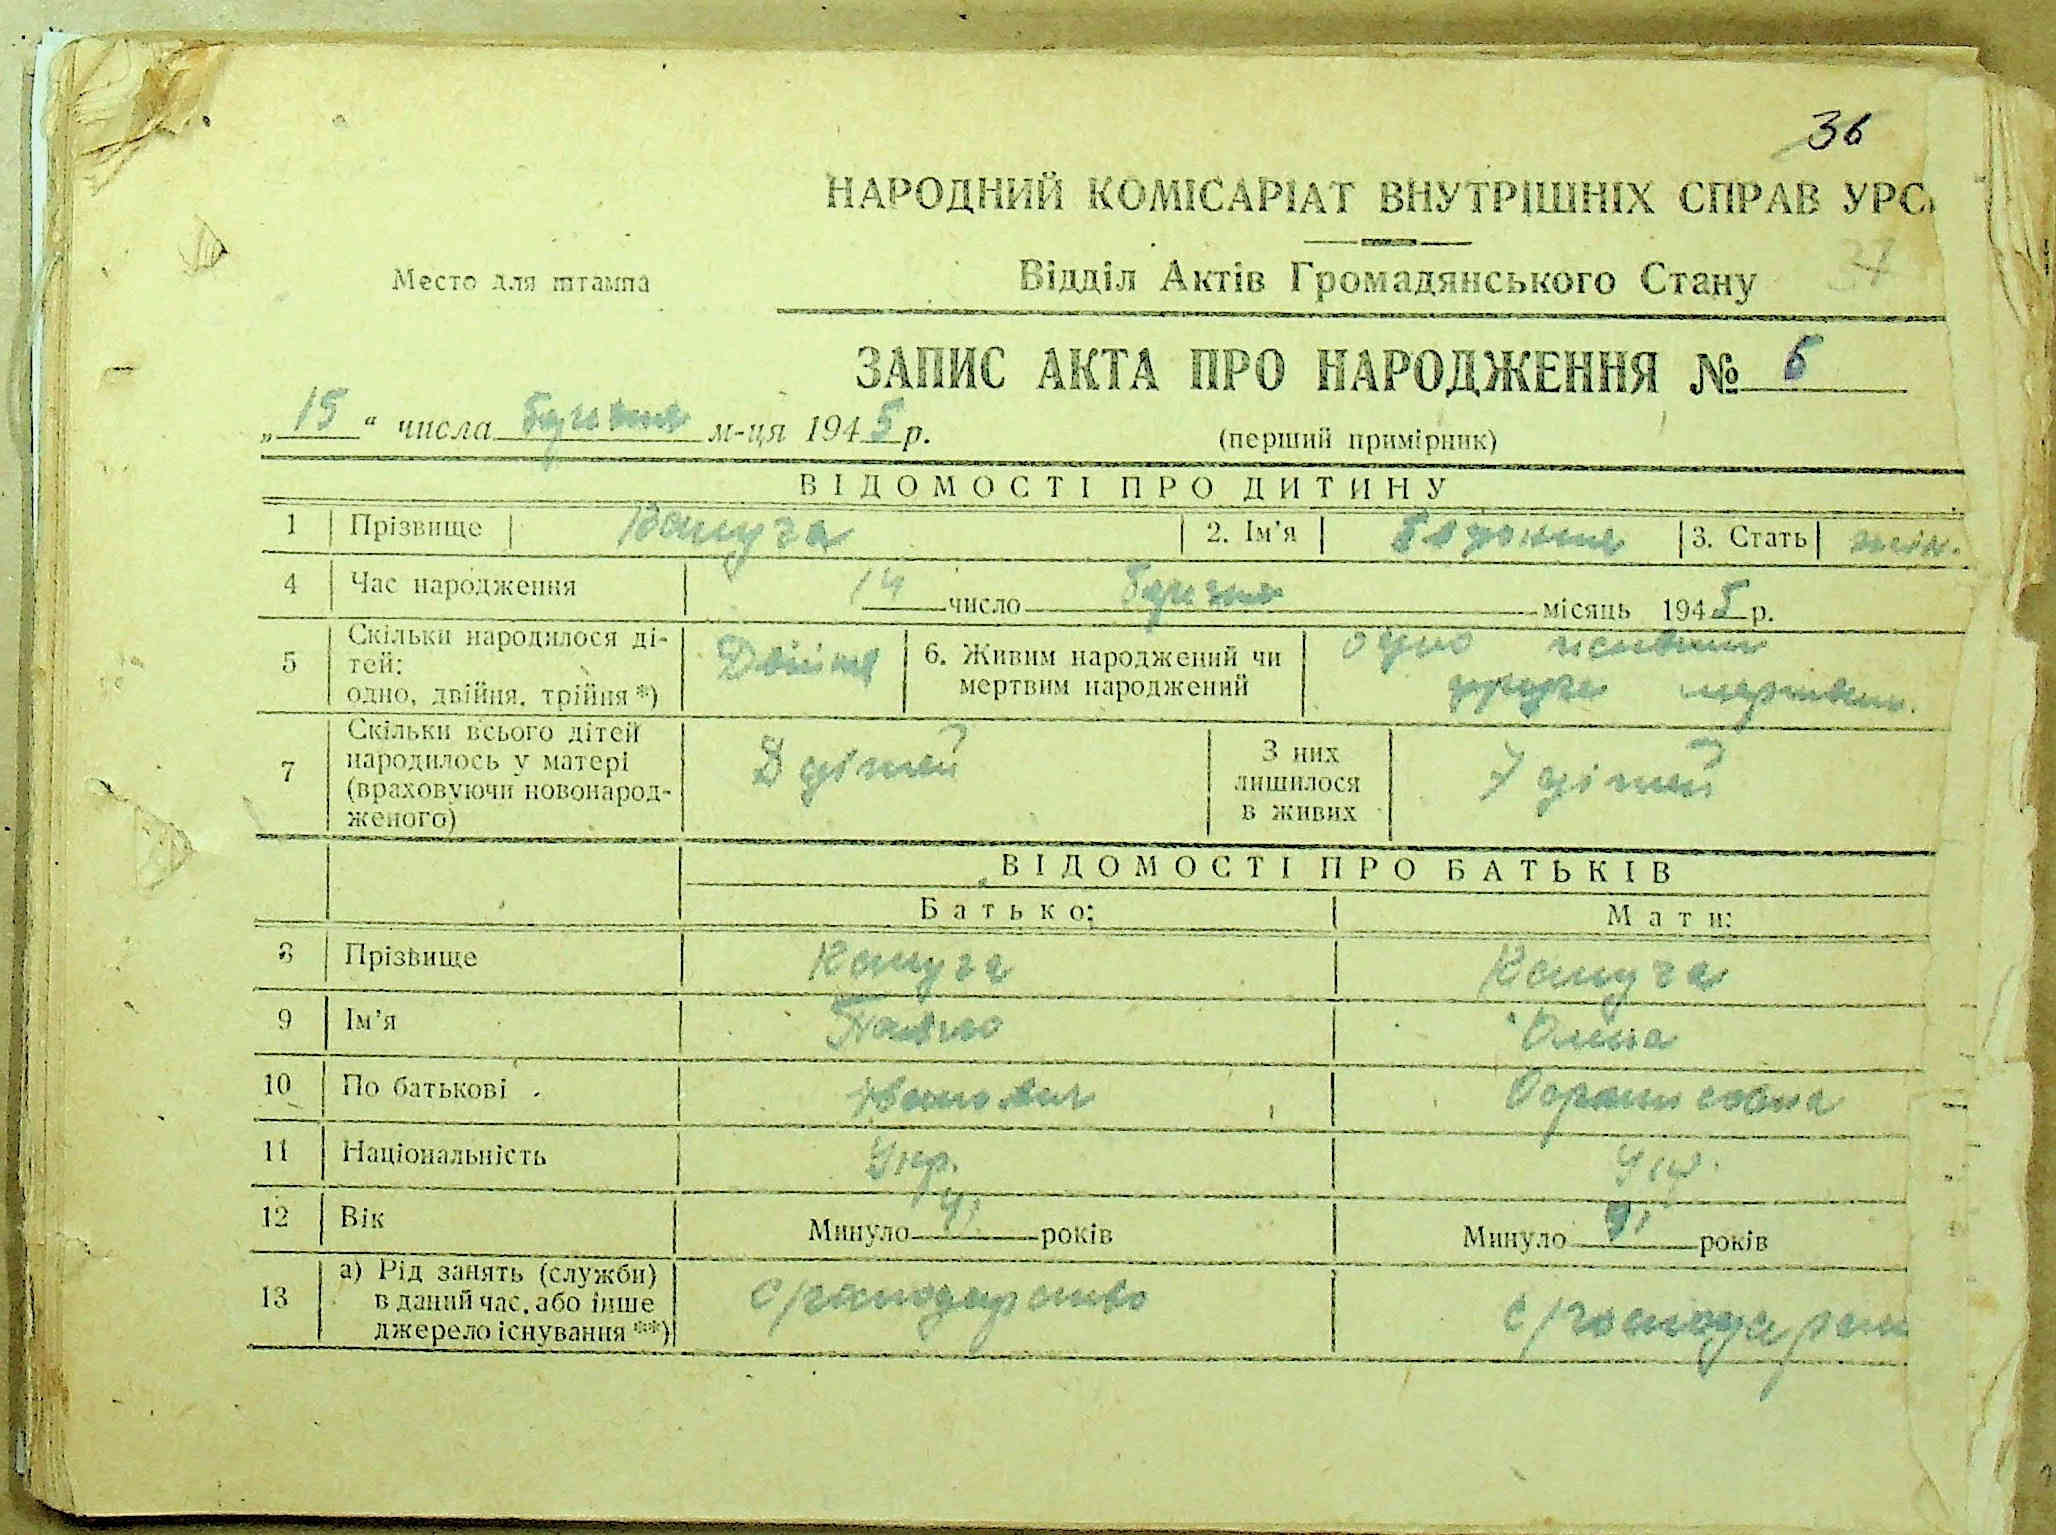 36
НАРОДНИЙ КОМІСАРІАТ ВНУТРІШНІХ СПРАВ УРС
37
Место для штампа
Відділ Актів Громадянського Стану
ЗАПИС АКТА ПРО НАРОДЖЕННЯ №
„ 15 “ числа березня м-ця 1945 р.
(перший примірник)
ВІДОМОСТІ ПРО ДИТИНУ
1 Прізвище 2. Ім’я 3. Стать жін.
4 Час народження 14 число березня місяць 1945 р.
5 Скільки народилося ді-
тей:
одно, двійня, трійня *) Двійня
6. Живим народжений чи
мертвим народжений
одно живим
друге мертвим.
7 Скільки всього дітей
народилось у матері
(враховуючи новонарод-
женого)
дітей
З них
лишилося
в живих
7 дітей
ВІДОМОСТІ ПРО БАТЬКІВ
Батько: Мати:
8 Прізвище
9 Ім’я Павло
10 По батькові Іванович
11 Національність Укр. Укр.
12 Вік Минуло років Минуло років
13 а) Рід занять (служби)
в даний час, або інше
джерело існування **)